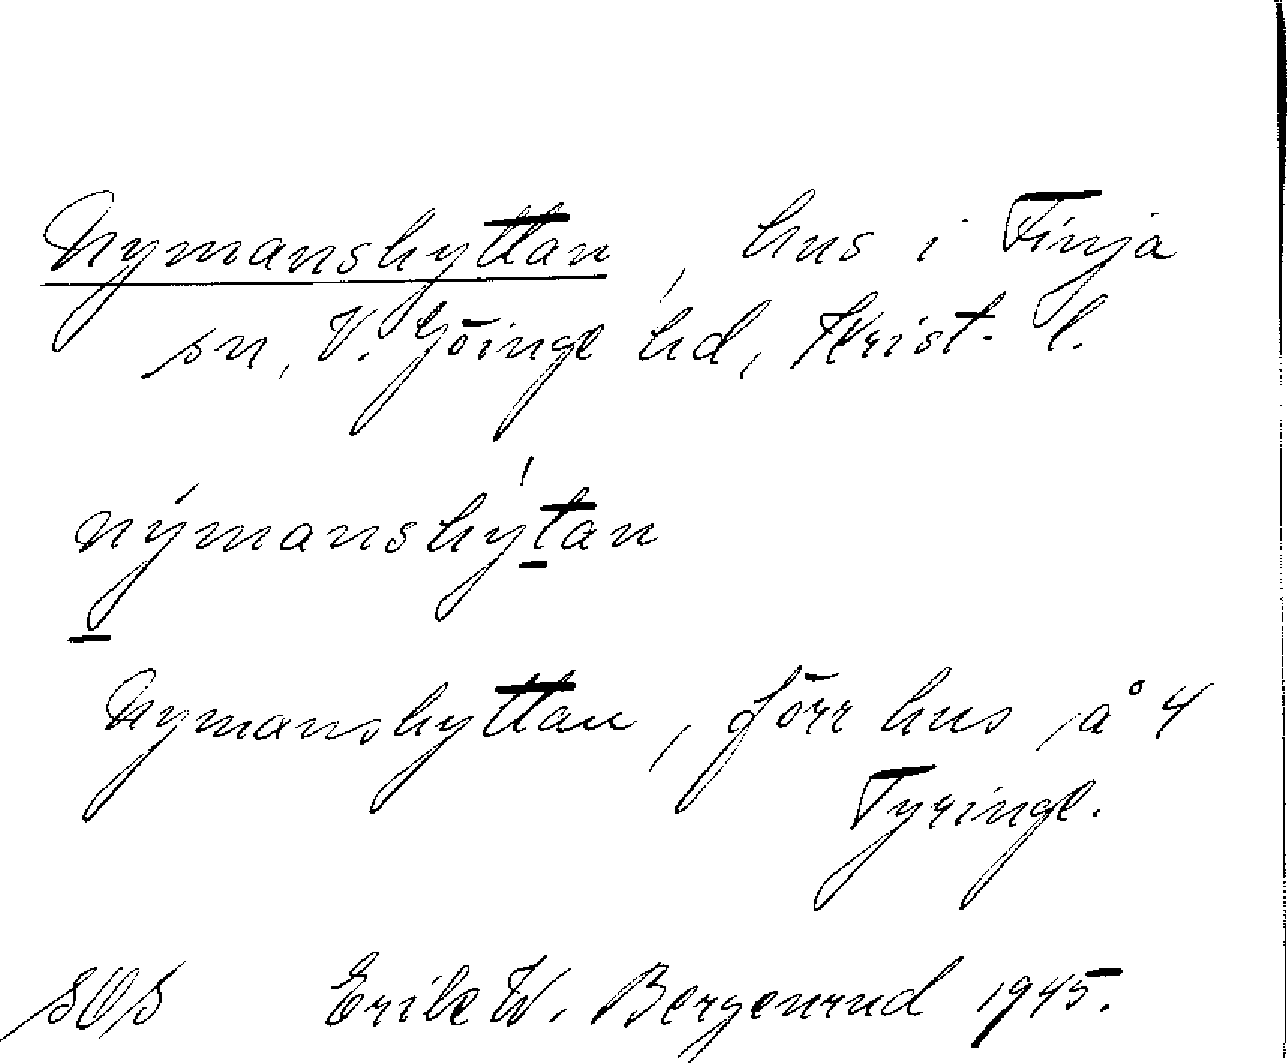 Nymanshyttan, hus i Finja
sn, V. Göinge hd, Krist. l.
nýmanshýtan
Nymanshyttan, förr hus på 4
Tyringe.
SOS Erik W. Bergenrud 1945.